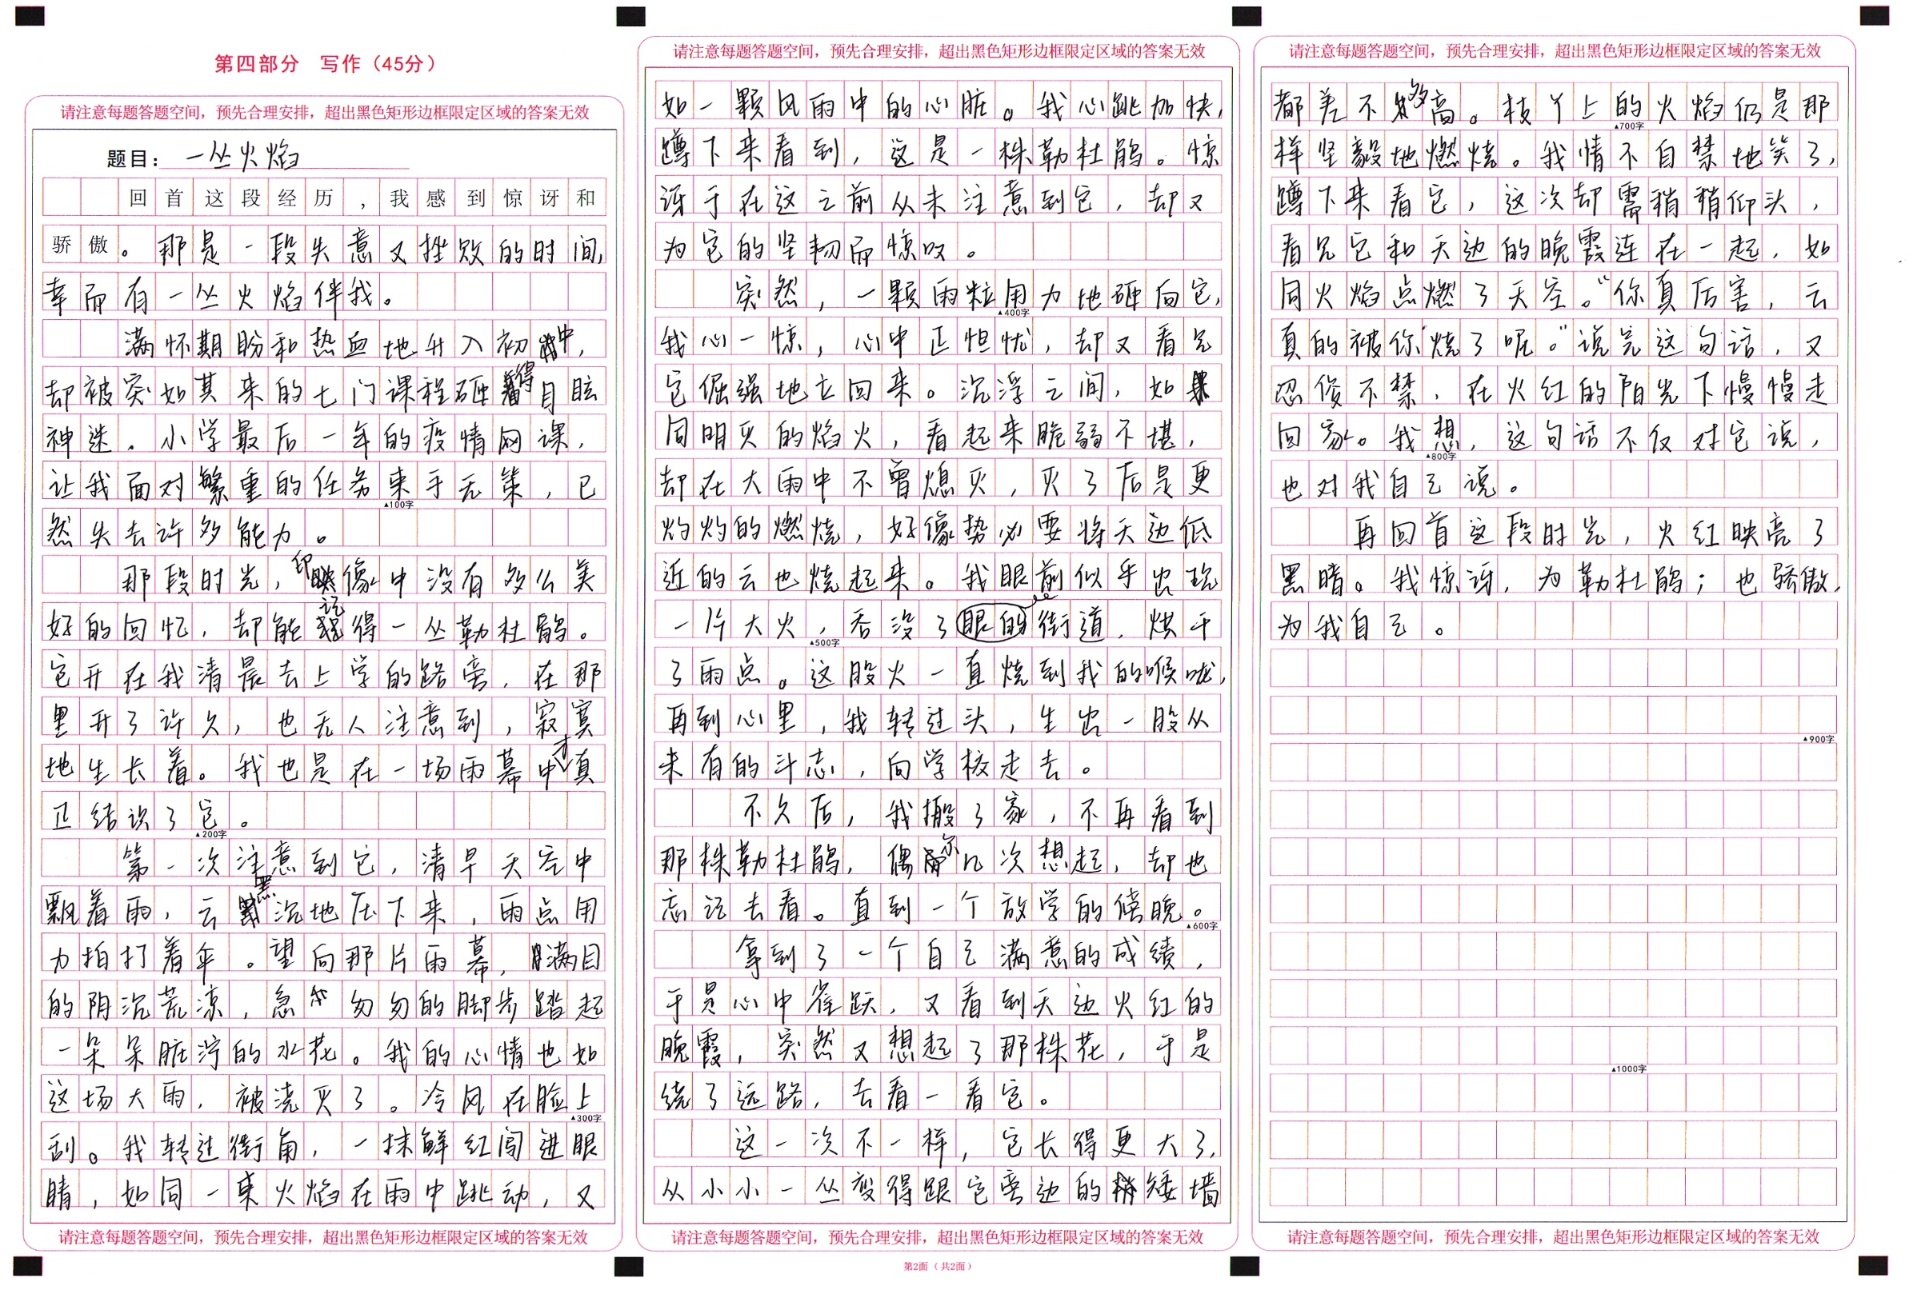 第四部分　写作（45分）
请注意每题答题空间，预先合理安排，超出黑色矩形边框限定区域的答案无效
题目：一丛火焰
回首这段经历，我感到惊讶和
骄傲。那是一段失意又挫败的时间，
幸而有一丛火焰伴我。
满怀期盼和热血地升入初中，
却被突如其来的七门课程砸得目眩
神迷。小学最后一年的疫情网课，
让我面对繁重的任务束手无策，已
▲100字
然失去许多能力。
那段时光，印像中没有多么美
好的回忆，却能记得一丛勒杜鹃。
它开在我清晨去上学的路旁，在那
里开了许久，也无人注意到，寂寞
地生长着。我也是在一场雨幕中才真
正结识了它。
▲200字
第一次注意到它，清早天空中
飘着雨，云黑沉地压下来，雨点用
力拍打着伞。望向那片雨幕，满目
的阴沉荒凉，急匆匆的脚步踏起
一朵朵脏泞的水花。我的心情也如
这场大雨，被浇灭了。冷风在脸上
▲300字
刮。我转过街角，一抹鲜红闯进眼
睛，如同一束火焰在雨中跳动，又
请注意每题答题空间，预先合理安排，超出黑色矩形边框限定区域的答案无效
请注意每题答题空间，预先合理安排，超出黑色矩形边框限定区域的答案无效
如一颗风雨中的心脏。我心跳加快，
蹲下来看到，这是一株勒杜鹃。惊
讶于在这之前从未注意到它，却又
为它的坚韧而惊叹。
突然，一颗雨粒用力地砸向它，
▲400字
我心一惊，心中正怛忧，却又看见
它倔强地立回来。沉浮之间，如
同明灭的焰火，看起来脆弱不堪，
却在大雨中不曾熄灭，灭了后是更
灼灼的燃烧，好像势必要将天边低
近的云也烧起来。我眼前似乎出现
一片大火，吞没了眼的街道，烘干
▲500字
了雨点。这股火一直烧到我的喉咙，
再到心里，我转过头，生出一股从
来有的斗志，向学校走去。
不久后，我搬了家，不再看到
那株勒杜鹃，偶尔几次想起，却也
忘记去看。直到一个放学的傍晚。
▲600字
拿到了一个自己满意的成绩，
于是心中雀跃，又看到天边火红的
晚霞，突然又想起了那株花，于是
绕了远路，去看一看它。
这一次不一样，它长得更大了，
从小小一丛变得跟它旁边的矮墙
请注意每题答题空间，预先合理安排，超出黑色矩形边框限定区域的答案无效
第2面（共2面）
请注意每题答题空间，预先合理安排，超出黑色矩形边框限定区域的答案无效
都差不多高。枝丫上的火焰仍是那
▲700字
样坚毅地燃烧。我情不自禁地笑了，
蹲下来看它，这次却需稍稍仰头，
看见它和天边的晚霞连在一起，如
同火焰点燃了天空。“你真厉害，云
真的被你烧了呢。”说完这句话，又
忍俊不禁，在火红的阳光下慢慢走
回家。我想，这句话不仅对它说，
▲800字
也对我自己说。
再回首这段时光，火红映亮了
黑暗。我惊讶，为勒杜鹃；也骄傲，
为我自己。
▲900字
▲1000字
请注意每题答题空间，预先合理安排，超出黑色矩形边框限定区域的答案无效